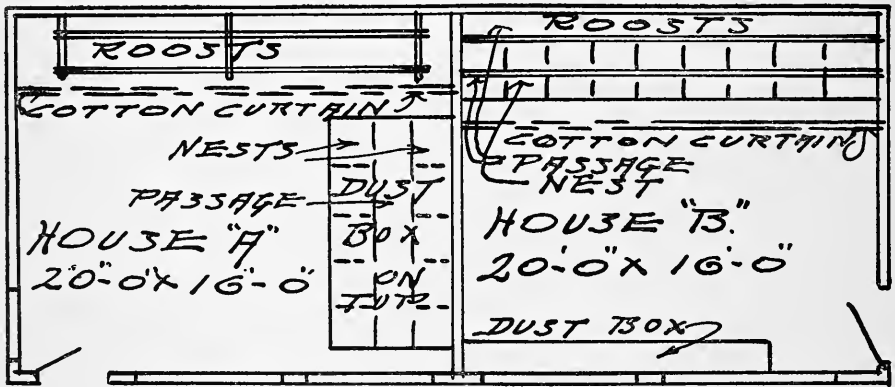 ROOSTS
COTTON CURTAIN
NESTS
PASSAGE
DUST
BOX
ON
TOP
HOUSE "A"
20'-0" X 16'-0"
ROOSTS
COTTON CURTAIN
PASSAGE
NEST
HOUSE "B."
20'-0" X 16'-0"
DUST BOX